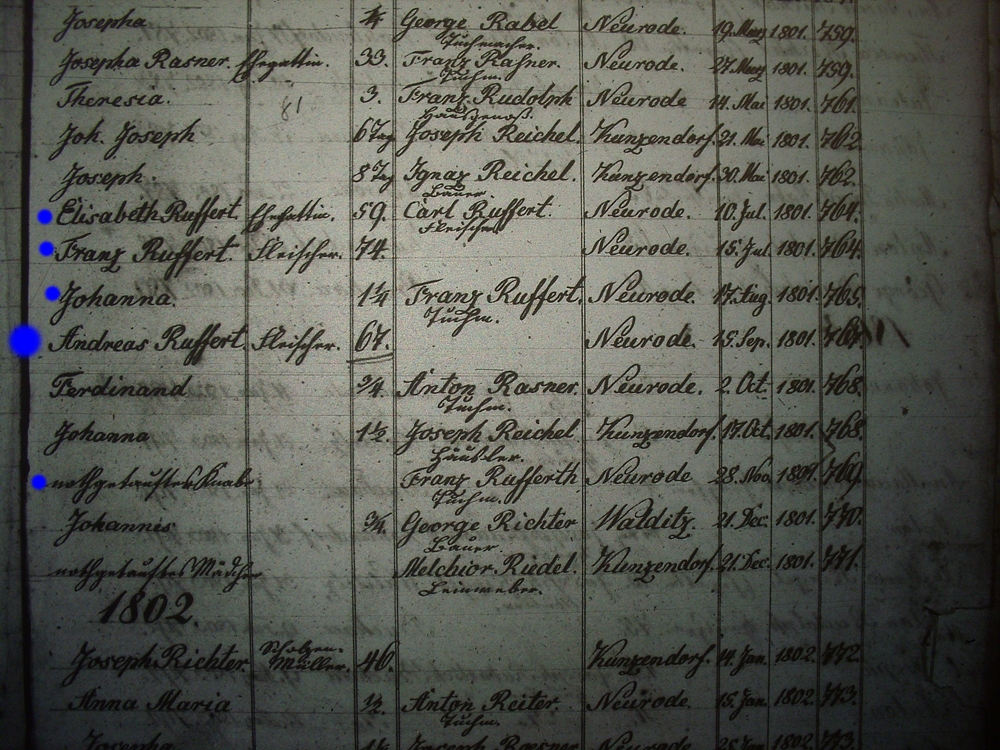 Josepha ¾ George Rabel Neurode. 19. Merz 1801. 759.
Tuchmacher.
Josepha Rasner. Ehegattin. 33. Franz Rasner. Neurode. 27. Merz 1801. 759.
Tuchm.
Theresia. 81 3. Franz Rudolph Neurode 14. Mai 1801. 761.
Hausgenoß.
Joh. Joseph 6 Tag Joseph Reichel. Kunzendorf. 21. Mai 1801. 762.
Joseph. 8 Tag Ignaz Reichel. Kunzendorf. 30. Mai 1801. 762.
Bauer
Elisabeth Ruffert. Ehegattin. 59. Carl Ruffert. Neurode. 10. Jul. 1801. 764.
Fleischer
Franz Ruffert. Fleischer. 74. Neurode. 15. Jul. 1801. 764.
Johanna. 1¼ Franz Ruffert. Neurode. 17. Aug. 1801. 765.
Tuchm.
Andreas Ruffert. Fleischer. 67. Neurode. 15. Sep. 1801.
Ferdinand ¾ Anton Rasner. Neurode. 2. Oct. 1801. 768.
Tuchm.
Johanna 1½ Joseph Reichel Kunzendorf. 17. Oct. 1801. 768.
Häusler.
nothgetaufter Knabe Franz Rufferth Neurode 28. Nov. 1801. 769.
Tuchm.
Johannes ¾. George Richter Walditz. 21. Dec. 1801. 770.
Bauer.
nothgetauftes Mädchen Melchior Riedel. Kunzendorf. 21. Dec. 1801. 771.
Leinweber.
1802
Joseph Richter. Scholzen- 46. Kunzendorf. 14. Jan. 1802. 772.
Müller.
Anna Maria ½. Anton Reiter. Neurode. 15. Jan. 1802. 773.
Tuchm.
Josepha 1½ Joseph Rasner Neurode 25. Jan. 1802.